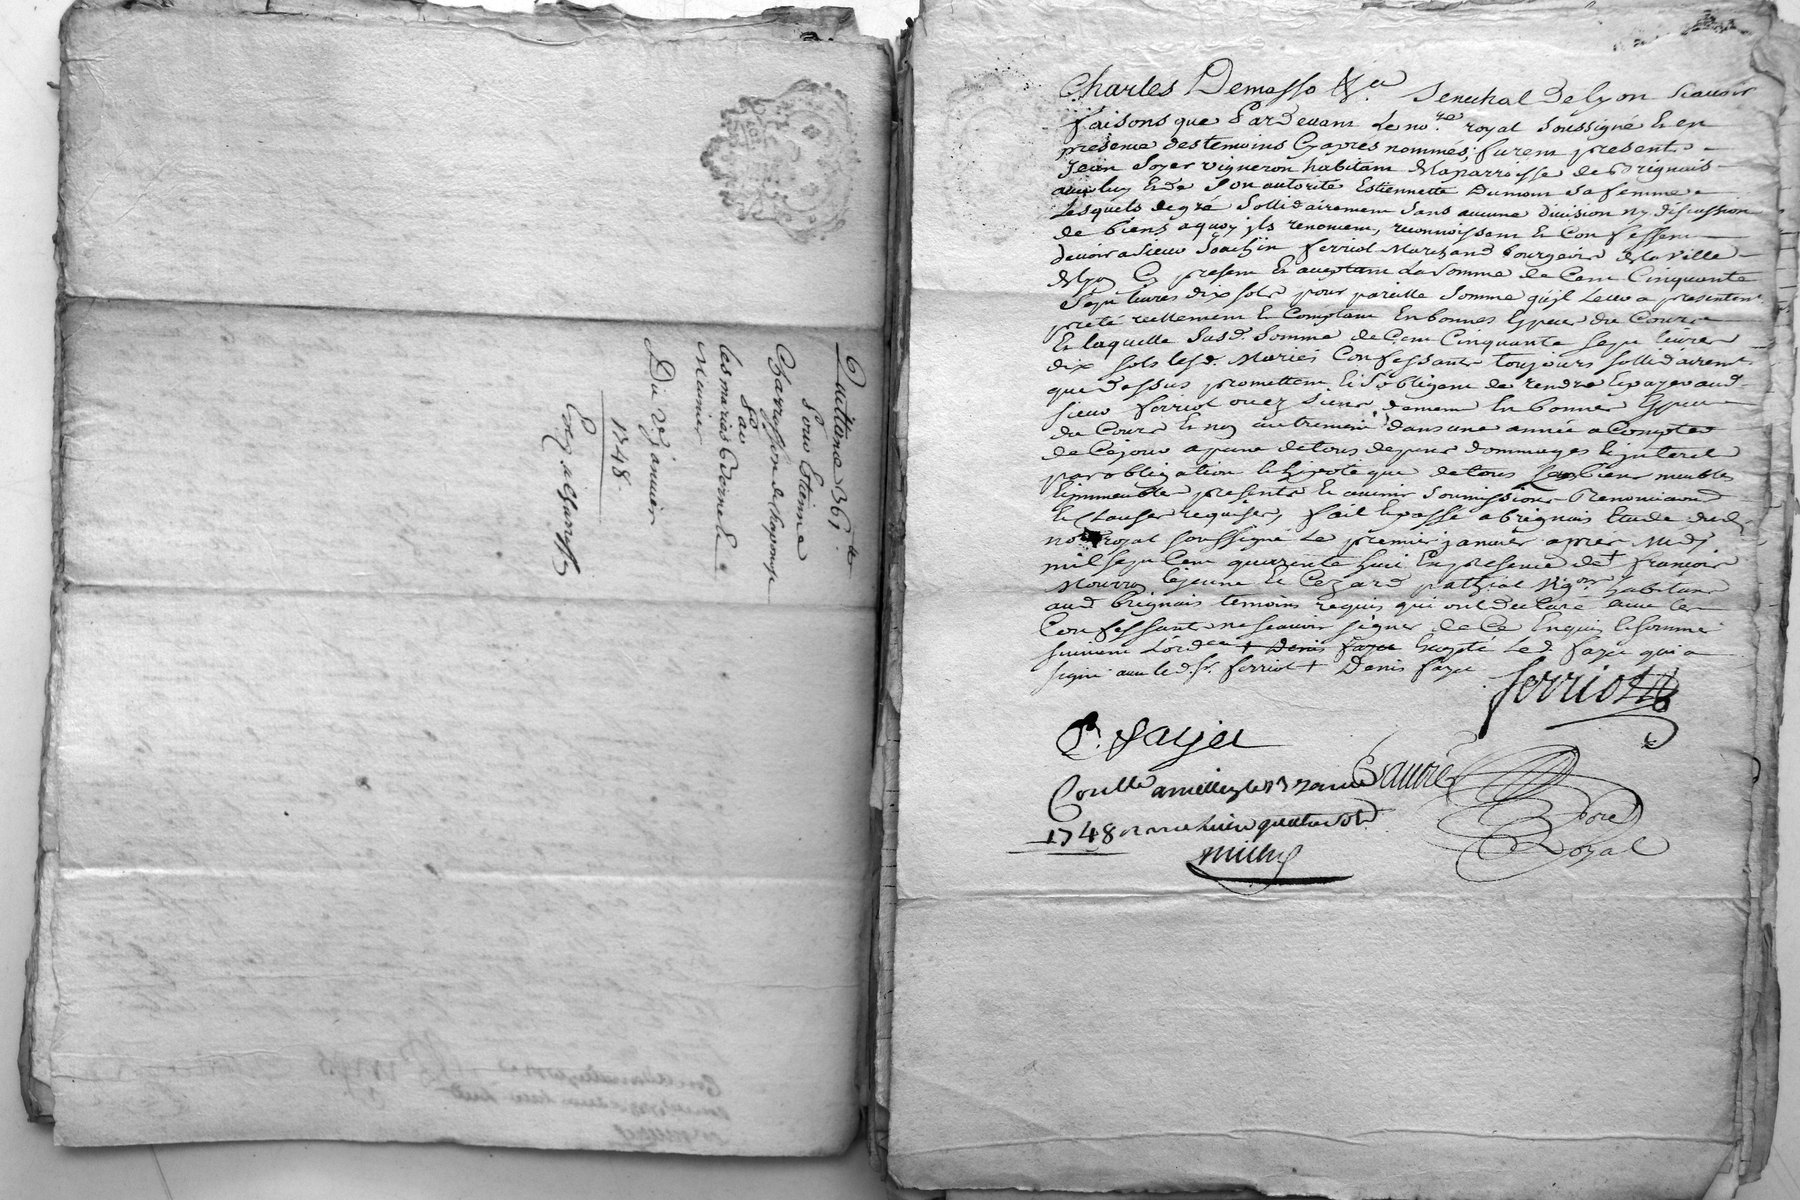 Quittance 136ₗ tt
Sous Etienne
Charresson de chaponost
Par
les mariés Cornet &
Meunier
Du 2e janvier
1748
Charles Demasso &ca Senechal de lyon scavoir
faisons que Pardevant le nore royal soussigné & en
presence des temoins Cy apres nommés, furent presents
jean Soyer vigneron habitant de la parroisse de Brignais
& de son autorité Estiennette Dumont sa femme
Lesquels de gré sollidairement sans aucune division ny discussion
de biens a quoy ils renoncent, reconnoissent & Confessent
devoir a sieur Joachin ferriol Marchand bourgeois de la ville
de Lyon Cy present & acceptant La somme de Cent Cinquante
Sept livres dix sols pour pareille somme qu'il Leur a presentement
preté reellement & Comptant En bonnes Especes du Cours
& laquelle susd. somme de Cent Cinquante sept livres
dix sols lesd. Mariés Confessants toujours sollidairemt
que dessus promettent & s'obligent de rendre & payer aud.
sieur ferriol ou ez siens, dement En bonnes Especes
du Cours & non autrement dans une année a Compter
de Cejour a peine de tous depens dommages & interets
par obligation & hypoteque de tous Leurs biens meubles
& immeubles presents & avenir soumissions Renonciations
& Clauses requises, fait & passé a brignais Etude dud.
nore Royal soussigné Le premier janvier apres Midy
mil sept Cent quarente huit En presence de + francois
Mourron lejeune & Cezard pathial Vigons habitans
aud. brignais temoins requis qui ont declaré avec les
Confessants ne scavoir signer de Ce Enquis & sommé
suivant L'ordce + Denis fayet Excepté Led. fayet qui a
signé avec led. sr. ferriol + Denis fayet
ferriol
D. fayet
Conllé a millery le 13 janvier
1748 recu huit quatre sols
nore
Royal